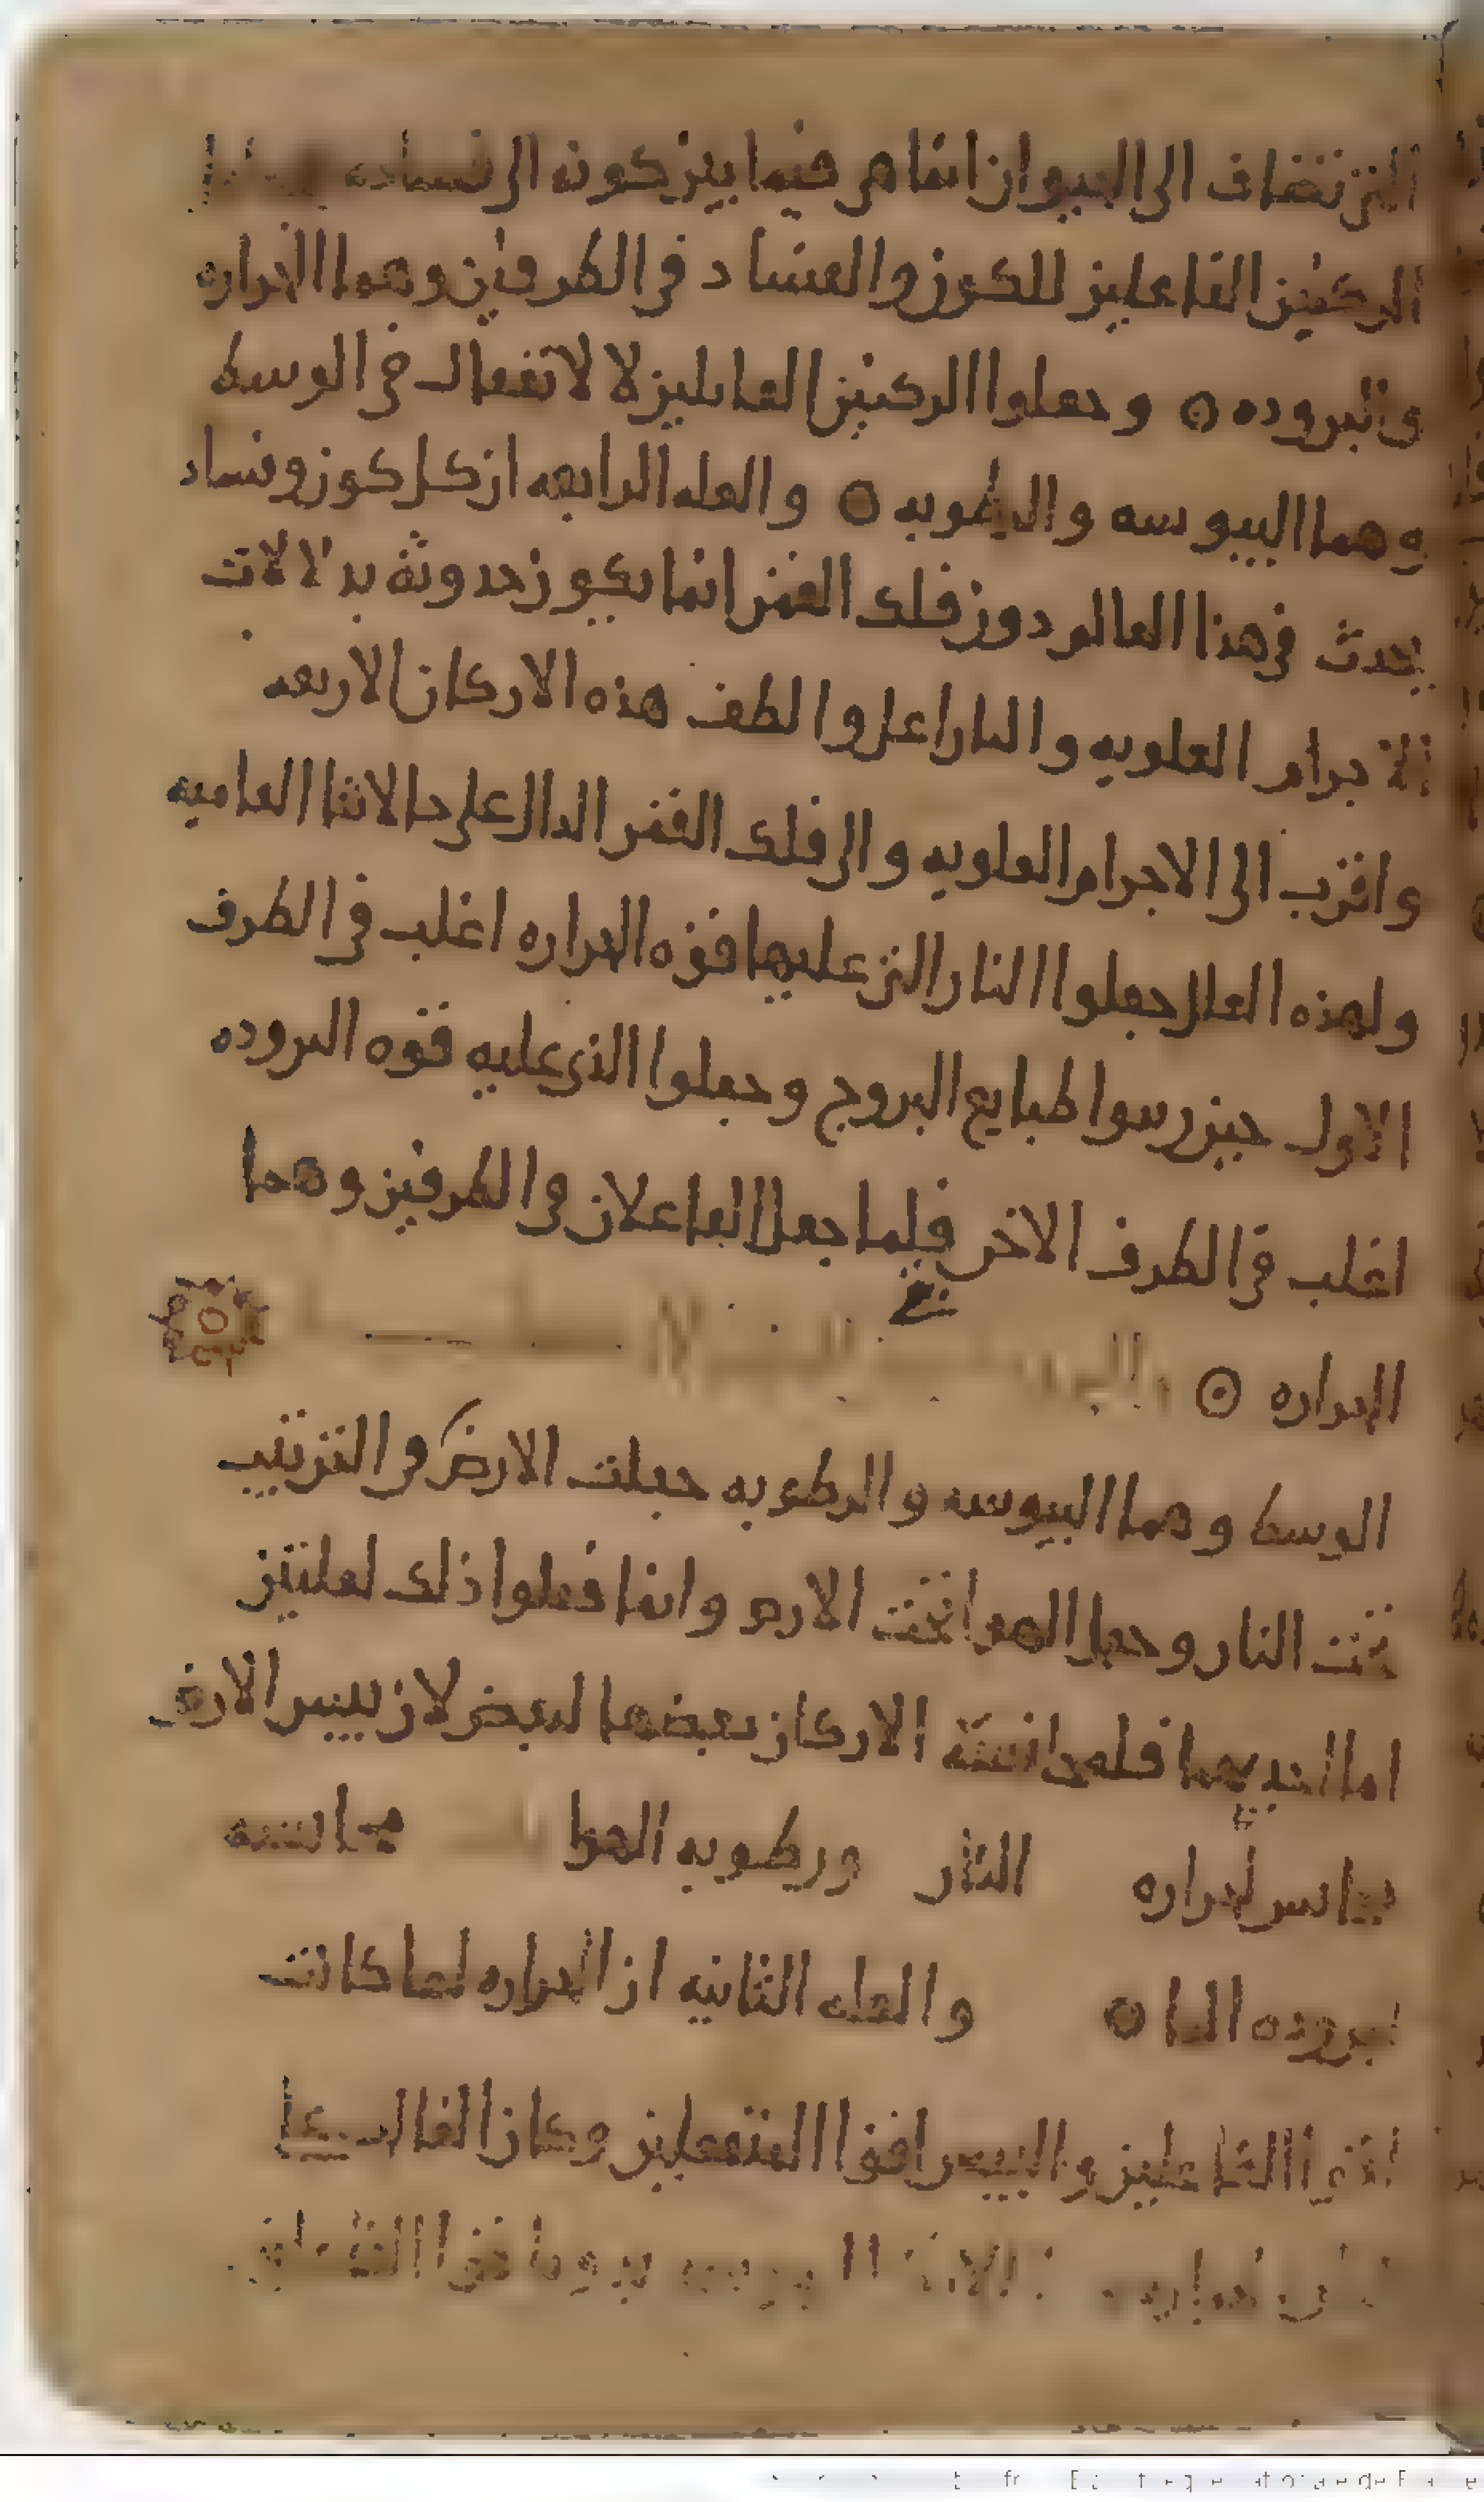 التي تضاف الى الحيوان انما هى فيما بين كونه الى فساده
الركنين الفاعلين للكون والفساد فى الطرفين وهما الحراره
والبروده ⊙ وجعلوا الركنين القابلين لا لانفعال فى الوسط
وهما اليبوسه والرطوبه ⊙ والعله الرابعه ان كل كون وفساد
يحدث فى هذا العالم دون فلك القمر انما يكون حدوثه بدلالات
الاجرام العلويه والنار اعلى والطف هذه الاركان الاربعه
واقرب الى الاجرام العلويه والى فلك القمر الدال على حالاتنا العاميه
ولهذه العلل جعلوا النار التى عليها قوه الحراره اغلب فى الطرف
الاول حين رسوا طبايع البروج وجعلوا الذى عليه قوه البروده
اغلب فى الطرف الاخر فلما جعل الفاعلان فى الطرفين وهما
الحراره ⊙
الوسط وهما اليبوسه والرطوبه جعلت الارض فى الترتيب
تحت النار وجعل الهوا تحت الارض وانما فعلوا ذلك لعلتين
اما احديهما فلمجانسة الاركان بعضها لبعض لان يبس الارض
مجانس لحراره النار ورطوبه الهوا مجانسه
لبروده الما ⊙ والعله الثانيه ان الحراره لما كانت
اقوى الفاعلين واليبس اقوا المنفعلين وكان الغالب على